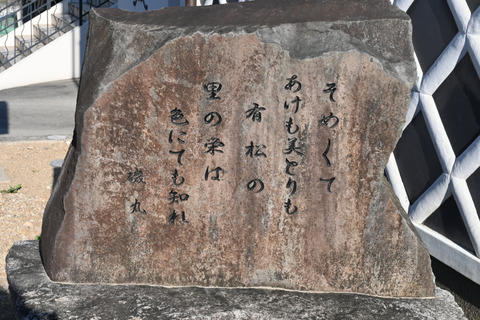 そめくて
あけも美どりも
有松の
里の栄は
色にても知れ
磯丸